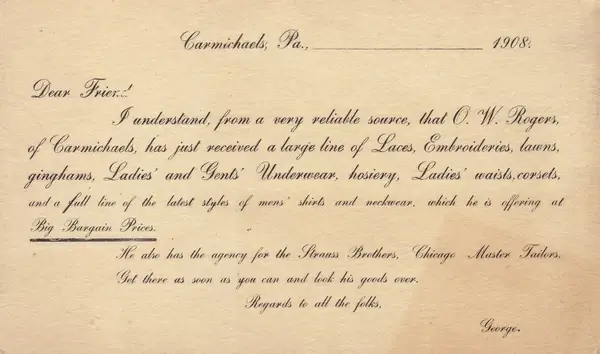 Carmichaels, Pa., 1908.
Dear Friend:
I understand, from a very reliable source, that O. W. Rogers,
of Carmichaels, has just received a large line of Laces, Embroideries, lawns,
ginghams, Ladies' and Gents' Underwear, hosiery, Ladies' waists, corsets,
and a full line of the latest styles of mens' shirts and neckwear, which he is offering at
Big Bargain Prices.
He also has the agency for the Strauss Brothers, Chicago Master Tailors.
Get there as soon as you can and look his goods over.
Regards to all the folks,
George.